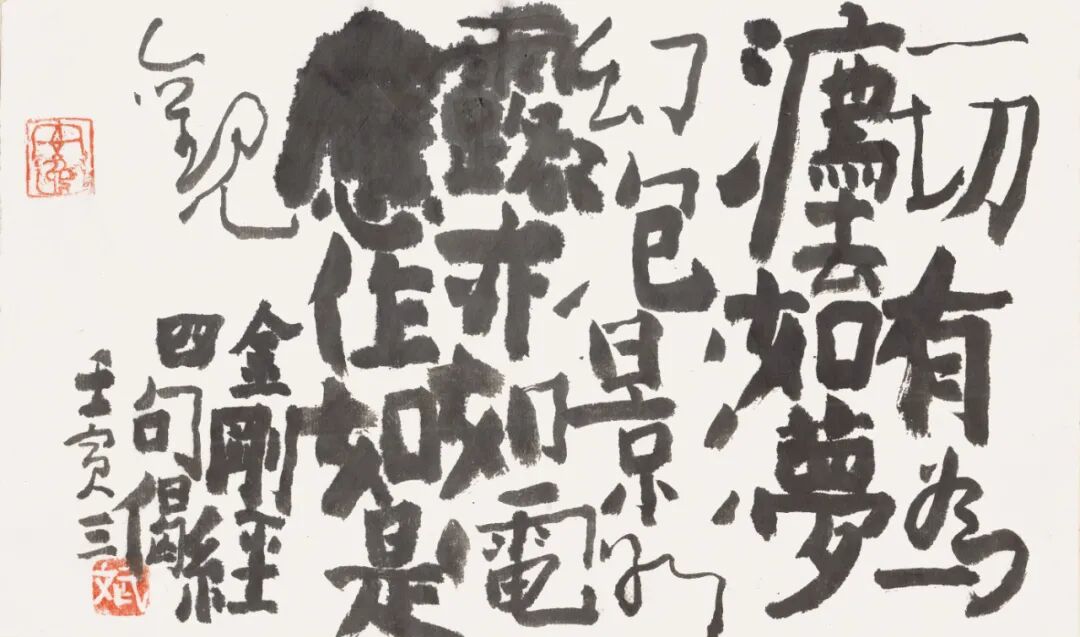 一切有為
灋如夢
幻泡影如
露亦如電
應作如是
觀
金剛經
四句偈
壬寅三